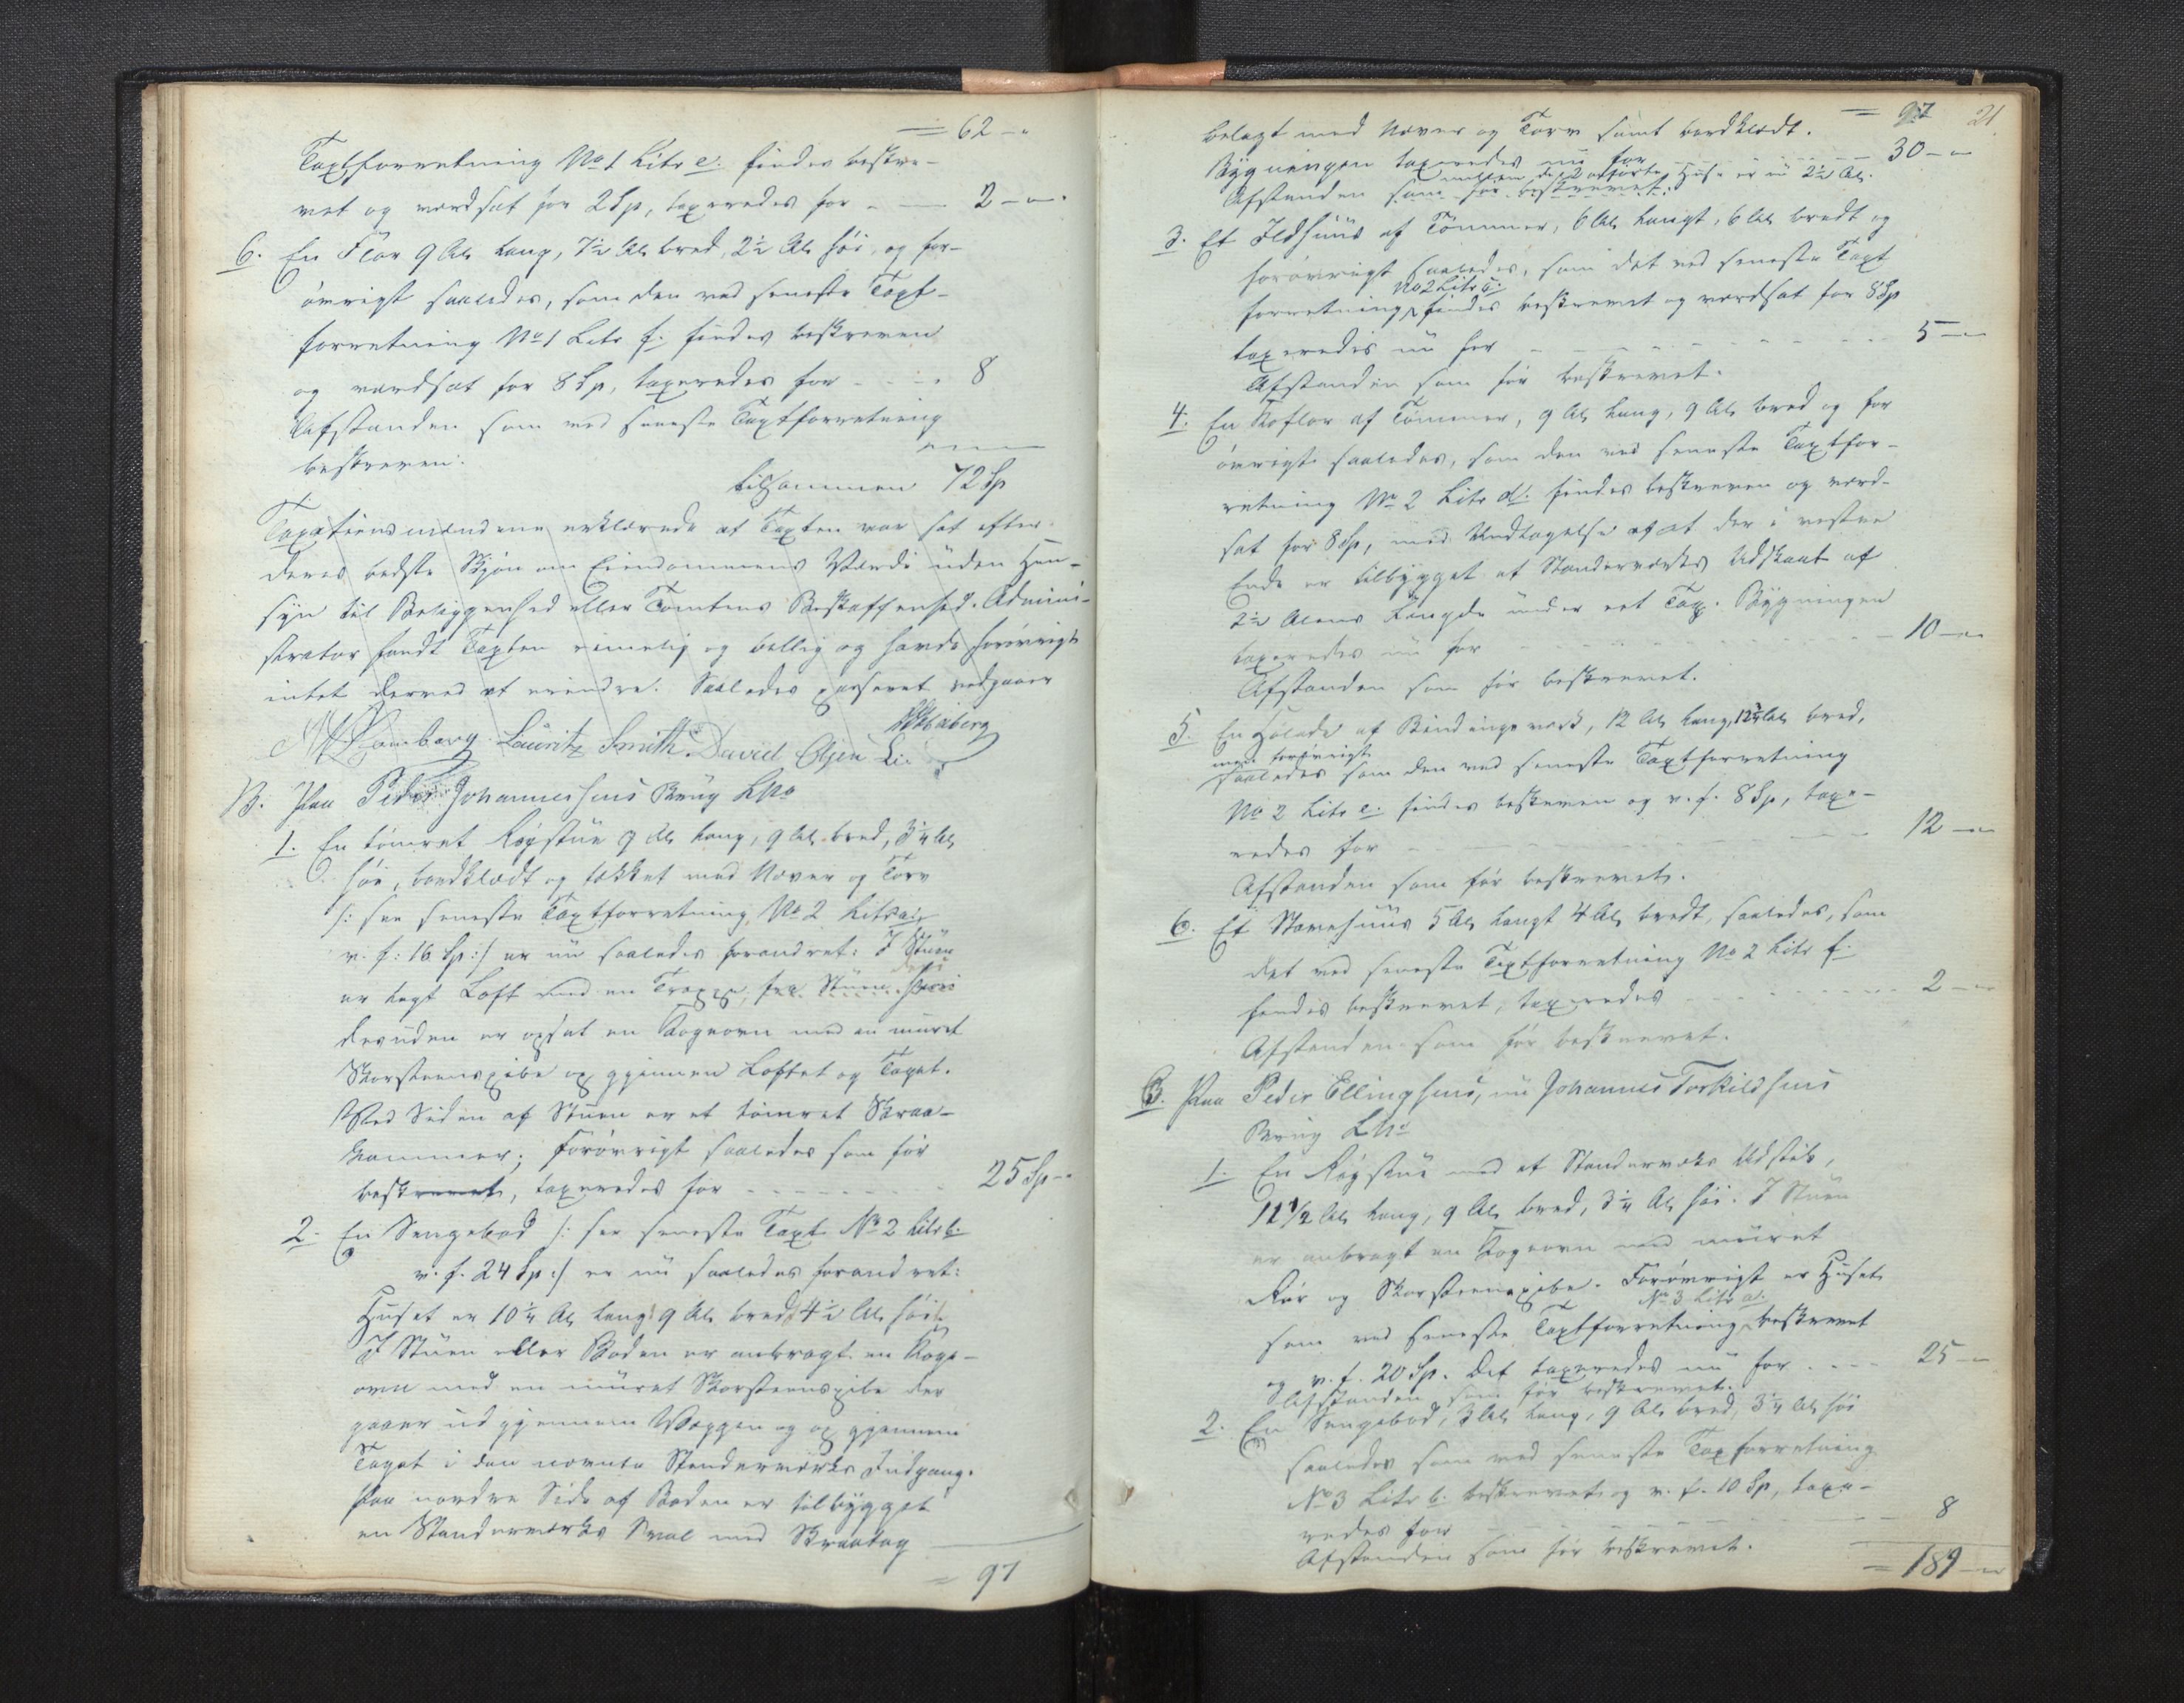 = 62 - "
Taxtforretning No 1 Litr e. findes beskre-
vet og værdsat for 2 Sp, taxeredes for - — 2 - " -
6. En Flor 9 Al. lang, 7½ Al. bred, 2½ Al. høi, og for-
øvrigt saaledes, som den ved seneste Taxt-
forretning No 1 Litr f. findes beskreven
og værdsat for 8 Sp, taxeredes for - - - 8
Afstanden som ved seneste Taxtforretning
beskreven.
tilsammen 72 Sp
Taxationsmændene erklærede at Taxten var sat efter
deres bedste Skjøn om Eiendommens Værdi uden Hen-
syn til Beliggenhed eller Tomtens Beskaffenhed. Admini-
strator fandt Taxten rimelig og billig og havde forøvrigt
intet derved at erindre. Saaledes passeret vedgaaer
Lauritz Smith. David Olsen Lie
B. Paa Peder Johannessens Brug LNo
1. En tømret Røgstue 9 Al. lang, 9 Al. bred, 3¼ Al.
høi, bordklædt og tækket med Næver og Torv
/: see seneste Taxtforretning No 2 Litr a.
v. f. 16 Sp :/ er nu saaledes forandret: I Stuen
er lagt Loft med en Trappe, fra Stuen
desuden er opsat en Kogeovn med en muret
Skorsteenspibe op gjennem Loftet og Taget.
Ved Siden af Stuen er et tømret Skraa-
kammer; forøvrigt saaledes som før
beskrevet, taxeredes for - - - - - - - - 25 Sp - "
2. En Sengebod /: see seneste Taxt No 2 Litr b.
v. f. 24 Sp :/ er nu saaledes forandret:
Huset er 10¼ Al. langt 9 Al. bredt 4½ Al. høit
I Stuen eller Boden er anbragt en Koge-
ovn med en muret Skorsteenspibe der
gaaer ud gjennem Væggen og op gjennem
Taget i den nævnte Stenderværks Indgang.
Paa nordre Side af Boden er tilbygget
en Stenderværks Sval med Skraatag
= 97
= 97 21.
belagt med Næver og Torv samt bordklædt.
Bygningen taxeredes nu for - - - - - 30 - "
mellem de 2 anførte Huse er nu 2½ Al.
Afstanden som før beskrevet.
3. Et Ildhuus af Tømmer, 6 Al. langt, 6 Al. bredt og
forøvrigt saaledes, som det ved seneste Taxt
No 2 Litr c.
forretning findes beskrevet og værdsat for 8 Sp
taxeredes nu for - - - - - - - - - 5 - "
Afstanden som før beskrevet.
4. En Koflor af Tømmer, 9 Al. lang, 9 Al. bred og for
øvrigt saaledes, som den ved seneste Taxtfor-
retning No 2 Litr d. findes beskreven og værd-
sat for 8 Sp, med Undtagelse af at der i vestre
Ende er tilbygget et Stenderværks Udskaat af
2½ Alens Længde under eet Tag. Bygningen
taxeredes nu for - - - - - - - - - 10 - "
Afstanden som før beskrevet.
5. En Hølade af Bindingsværk, 12 Al. lang, 12¼ Al. bred,
men forøvrigt
saaledes som den ved seneste Taxtforretning
No 2 Litr e. findes beskreven og v. f. 8 Sp, taxe-
redes for - - - - - - - - - 12 - "
Afstanden som før beskrevet.
6. Et Stavehuus 5 Al. langt 4 Al. bredt, saaledes, som
det ved seneste Taxtforretning No 2 Litr f.
findes beskrevet, taxeredes - - - - - - - - 2 - "
Afstanden som før beskrevet.
C. Paa Peder Ellingsens, nu Johannes Torkildsens
Brug LNo
1. En Røgstue med et Stenderværks Udskot,
11½ Al. lang, 9 Al. bred, 3¼ Al. høi. I Stuen
er anbragt en Kogeovn med muret
Rør og Skorsteenspibe. Forøvrigt er Huset
No 3 Litr a.
som ved seneste Taxtforretning beskrevet
og v. f. 20 Sp. Det taxeredes nu for - - - 25 - "
Afstanden som før beskrevet.
2. En Sengebod, 3 Al. lang, 9 Al. bred, 3¼ Al. høi
saaledes som ved seneste Taxforretning
No 3 Litr b. beskrevet og v. f. 10 Sp, taxe-
redes for - - - - - - - - - 8
Afstanden som før beskrevet.
= 189 - "